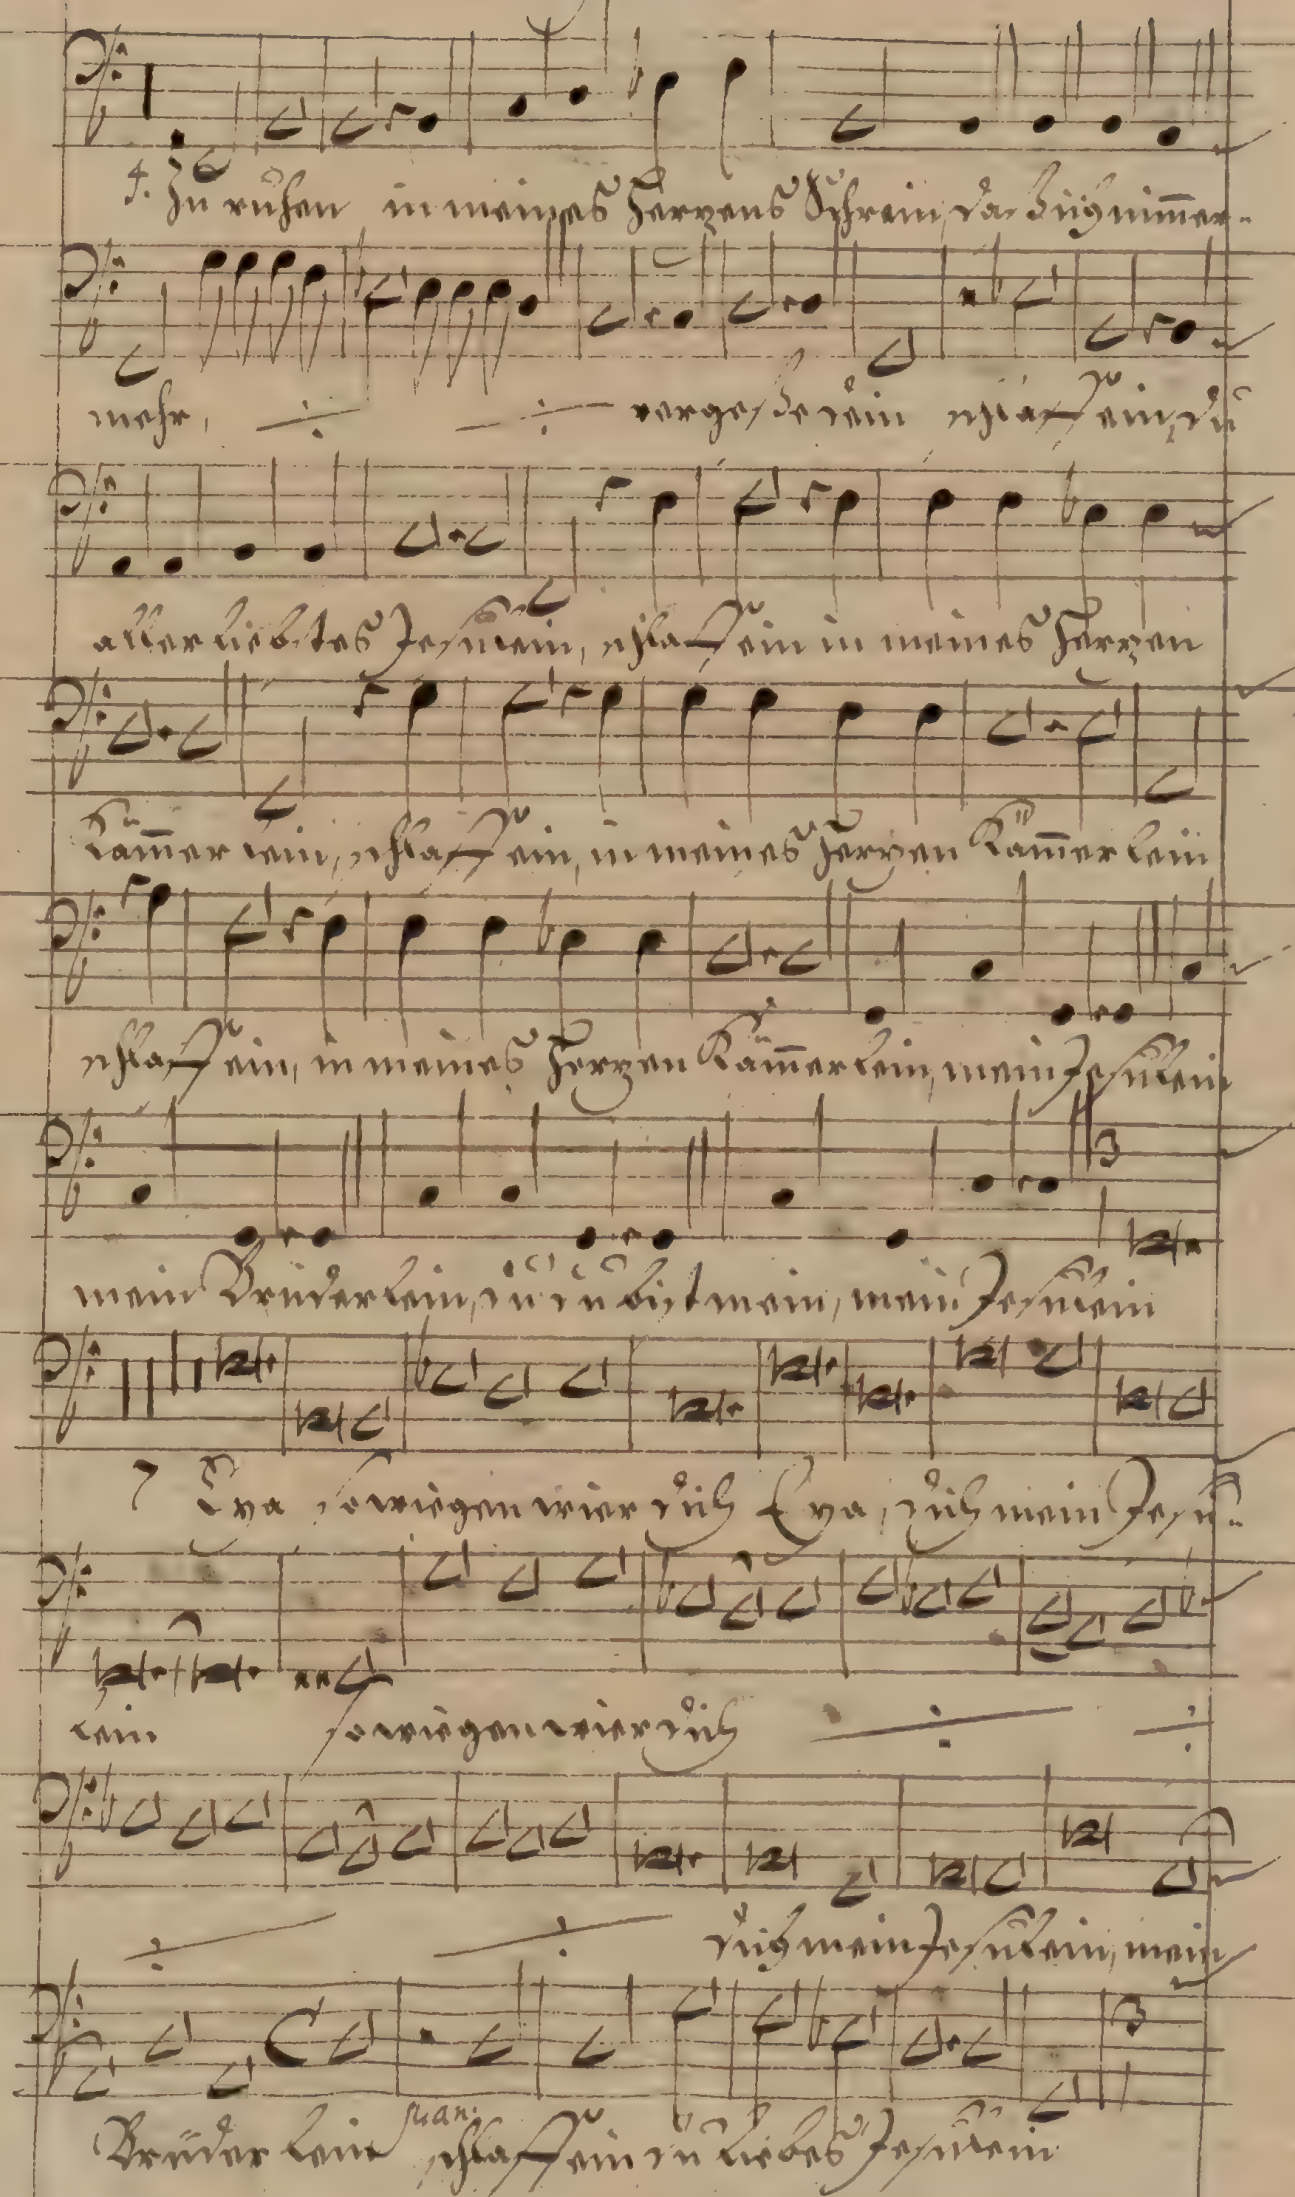 4. Zu ruhen in meines Hertzens Schrein, das Ich nimmer-
mehr, vergeße dein schlaff ein, du
allerliebstes Jesulein, schlaff ein in meines Hertzen
Kammerlein, schlaff ein, in meines Hertzen Kammerlein
schlaff ein, in meines Hertzen Kammerlein, mein Jesulein
mein Brüderlein, du du bist mein, mein Jesulein
3
7 Eya so wiegen wier dich Eya, dich mein Jesu-
lein so wiegen wier dich
dich mein Jesulein, mein
3
Brüderlein pian: schlaff ein du liebes Jesulein